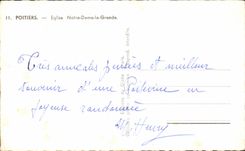 11. POITIERS. — Eglise Notre-Dame-la-Grande.
Très amicales pensées et meilleur
souvenir d'une Poitevine en
joyeuse randonnée